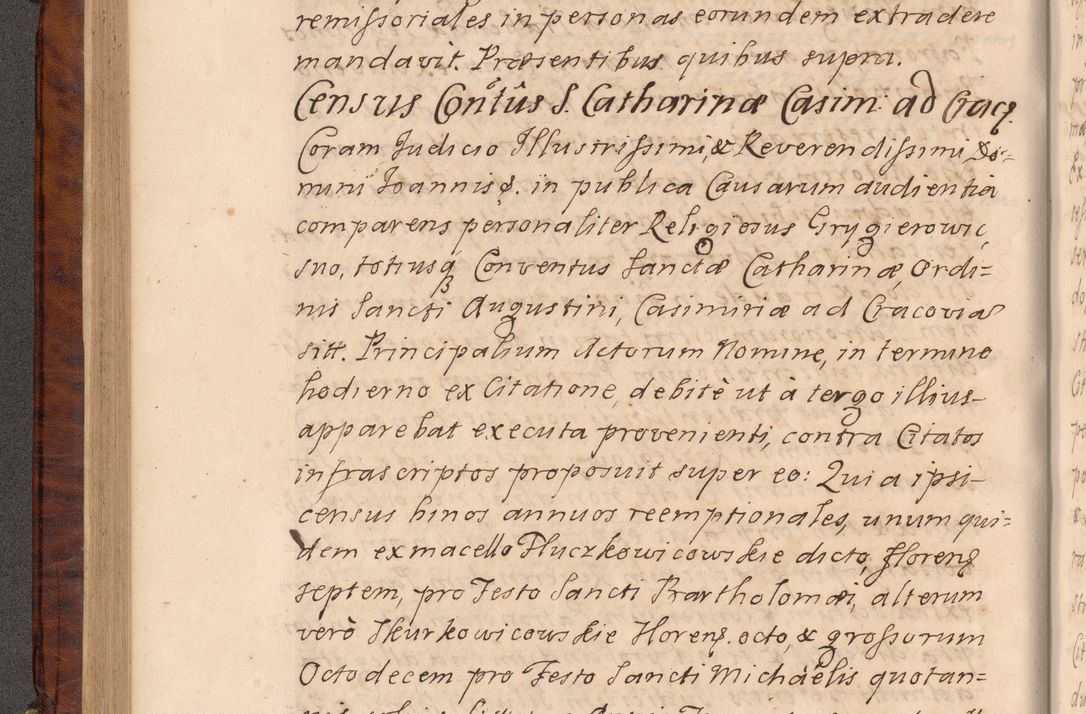 remissoriales in personas eorundem extradere
mandavit. Præsentibus quibus supra.
Census Con̂tûs S. Catharinæ Casim: ad Crac̨.
Coram Judicio Illustrissimi, & Reverendissimi, Do-
mini Joannis &. in publica Causarum audientia
comparens personaliter Religiosus Grygierowic,
suo, totiusq̨ Conventus Sanctæ Catharinæ, Ordi=
nis Sancti Augustini, Casimiriæ ad Cracovia
sitt. Principalium Actorum Nomine, in termino
hodierno ex Citatione, debitè ut à tergo illius-
apparebat executa provenienti, contra Citatos
infrascriptos proposuit super eo: Quia ipsi-
census binos annuos reemptionales, unum qui=
dem ex macello Pluczkowicowskie dicto, floren̨
septem, pro Festo Sancti Bartholomæi, alterum
verò Skurkowicowskie floren̨. octo, & grossorum
Octodecem pro Festo Sancti Michaëlis quotan=